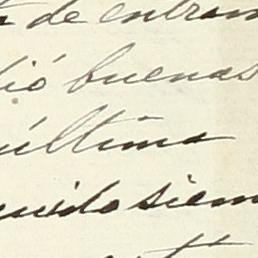 de entram
dió buenas
última
uido siem